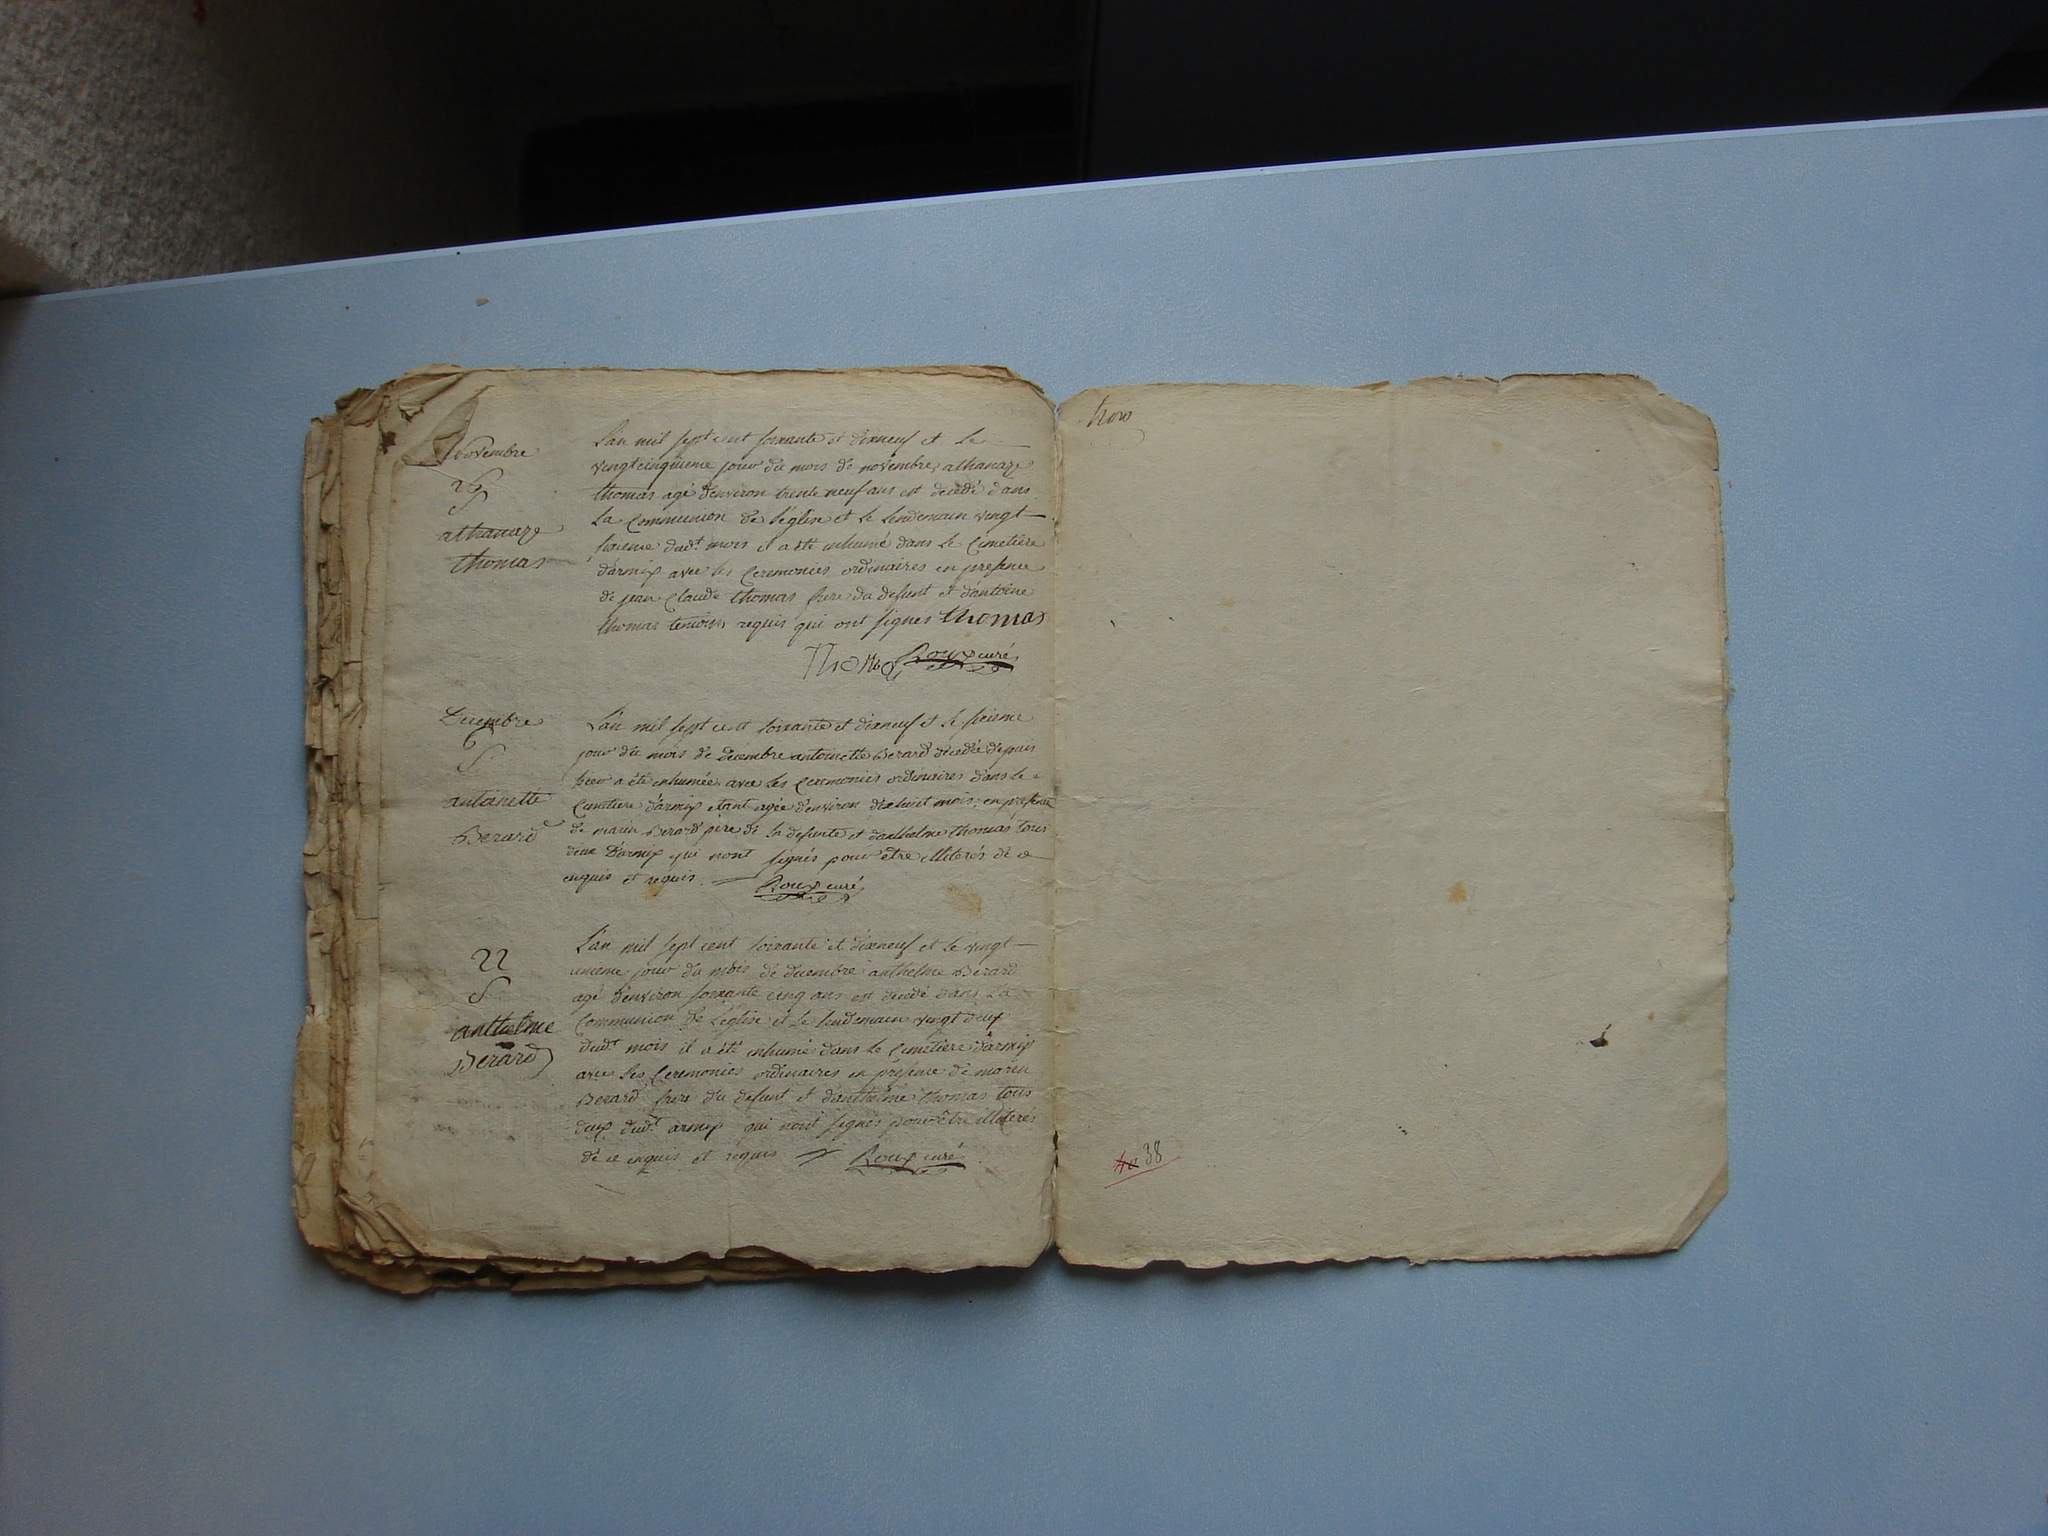 novembre
26
S
athanaze
thomas
L'an mil sept cent soixante et dixneuf et le
vingtcinquieme jour du mois de novembre athanaze
thomas agé d'environ trente neuf ans est decedé dans
la communion de l'eglise et le lendemain vingt
sixieme dudt mois il a été inhumé dans le cimetière
d'armix avec les ceremonies ordinaires en presence
de jean claude thomas frere du defunt et d'antoine
thomas temoins requis qui ont signes thomas
Thomas Roux curé
Decembre
6
S
antoinette
Berard
L'an mil sept cent soixante et dixneuf et le sixieme
jour du mois de decembre antoinette Berard decedée depuis
hier a été inhumée avec les ceremonies ordinaires dans le
cimetiere d'armix etant agée d'environ dixhuit mois, en presence
de marin Berard père de la defunte et d'anthelme thomas tous
deux d'armix qui n'ont signés pour être illiterés de ce
enquis et requis. Roux curé
22
S
anthelme
Berard
L'an mil sept cent soixante et dixneuf et le vingt
unieme jour du mois de decembre anthelme Berard
agé d'environ soixante cinq ans est decedé dans la
communion de l'eglise et le lendemain vingt deux
dudt mois il a été inhumé dans le cimetiere d'armix
avec les ceremonies ordinaires en présence de marin
Berard frere du defunt et d'anthelme thomas tous
deux dudt armix qui n'ont signés pour être illiterés
de ce enquis et requis Roux curé
38